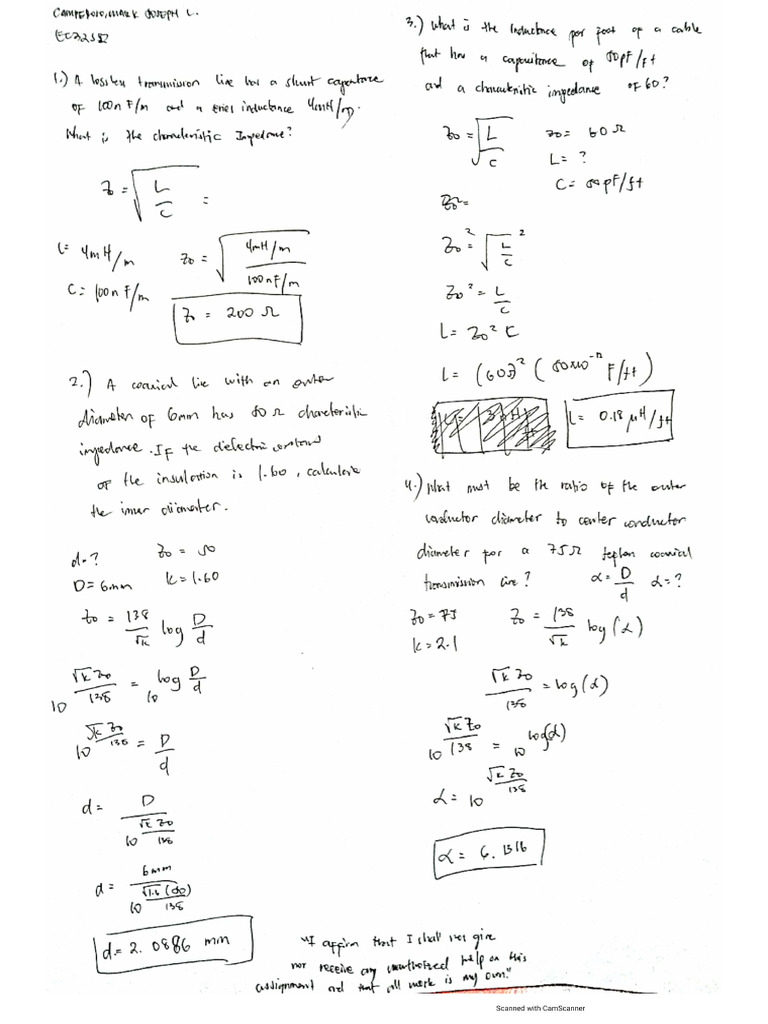 CAMPEROSO, MARK JOSEPH L.
1.) A lossless transmission line has a shunt capacitance
of 100n F/m and a series inductance 4mH/m.
What is the characteristic Impedance?
Z₀ = √(L/C) =
L= 4mH/m
C= 100n F/m
Z₀ = √(4mH/m / 100nF/m)
Z₀ = 200 Ω
2.) A coaxial line with an outer
diameter of 6mm has 50 Ω characteristic
impedance. If the dielectric constant
of the insulation is 1.60, calculate
the inner diameter.
d= ? Z₀ = 50
D= 6mm k = 1.60
Z₀ = 138/√k log D/d
10^(√k Z₀/138) = 10^(log D/d)
10^(√k Z₀/138) = D/d
d = D / 10^(√k Z₀/138)
d = 6mm / 10^(√1.6 (50)/138)
d = 2.0886 mm
3.) What is the Inductance per foot of a cable
that has a capacitance of 50pF/ft
and a characteristic impedance of 60?
Z₀ = √(L/C) Z₀ = 60 Ω
L = ?
C = 50pF/ft
Z₀²=
Z₀² = √(L/C)²
Z₀² = L/C
L = Z₀² C
L = (60Ω)² (50x10⁻¹² F/ft)
L = 0.18 μH/ft
4.) What must be the ratio of the outer
conductor diameter to center conductor
diameter for a 75Ω teflon coaxial
transmission line? α = D/d α = ?
Z₀ = 75 Z₀ = 138/√k log(α)
k = 2.1
√k Z₀/138 = log(α)
10^(√k Z₀/138) = 10^(log(α))
α = 10^(√k Z₀/138)
α = 6.1316
"I affirm that I shall not give
nor receive any unauthorized help on this
assignment and that all work is my own."
Scanned with CamScanner